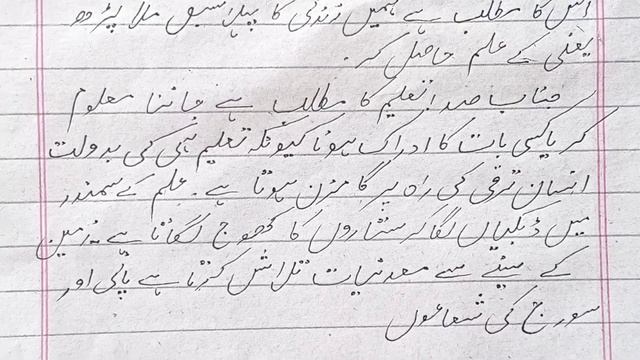 اس کا مطلب ہے ہمیں زندگی کا پہلا سبق ملا پڑھ
یعنی کے علم حاصل کر۔
جناب صدر! تعلیم کا مطلب ہے جاننا معلوم
کر یا کسی بات کا ادراک ہونا کیونکہ تعلیم ہی کی بدولت
انسان ترقی کی راہ پر گامزن ہوتا ہے۔ علم کے سمندر
میں ڈبکیاں لگا کر ستاروں کا کھوج لگاتا ہے۔ زمین
کے سینے سے معدنیات تلاش کرتا ہے پانی اور
سورج کی شعاعوں